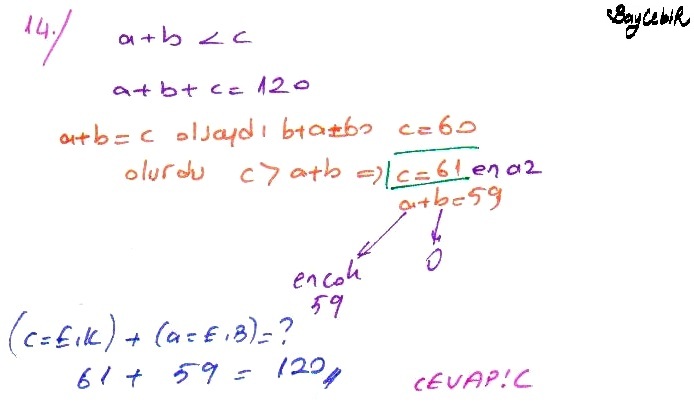 BayCebiR
14.) a+b < c
a+b+c=120
a+b=c olsaydı c=60
olurdu c > a+b => c=61 en az
a+b=59
en çok 0
59
(c=E.K) + (a=E.B)=?
61 + 59 = 120
CEVAP: C